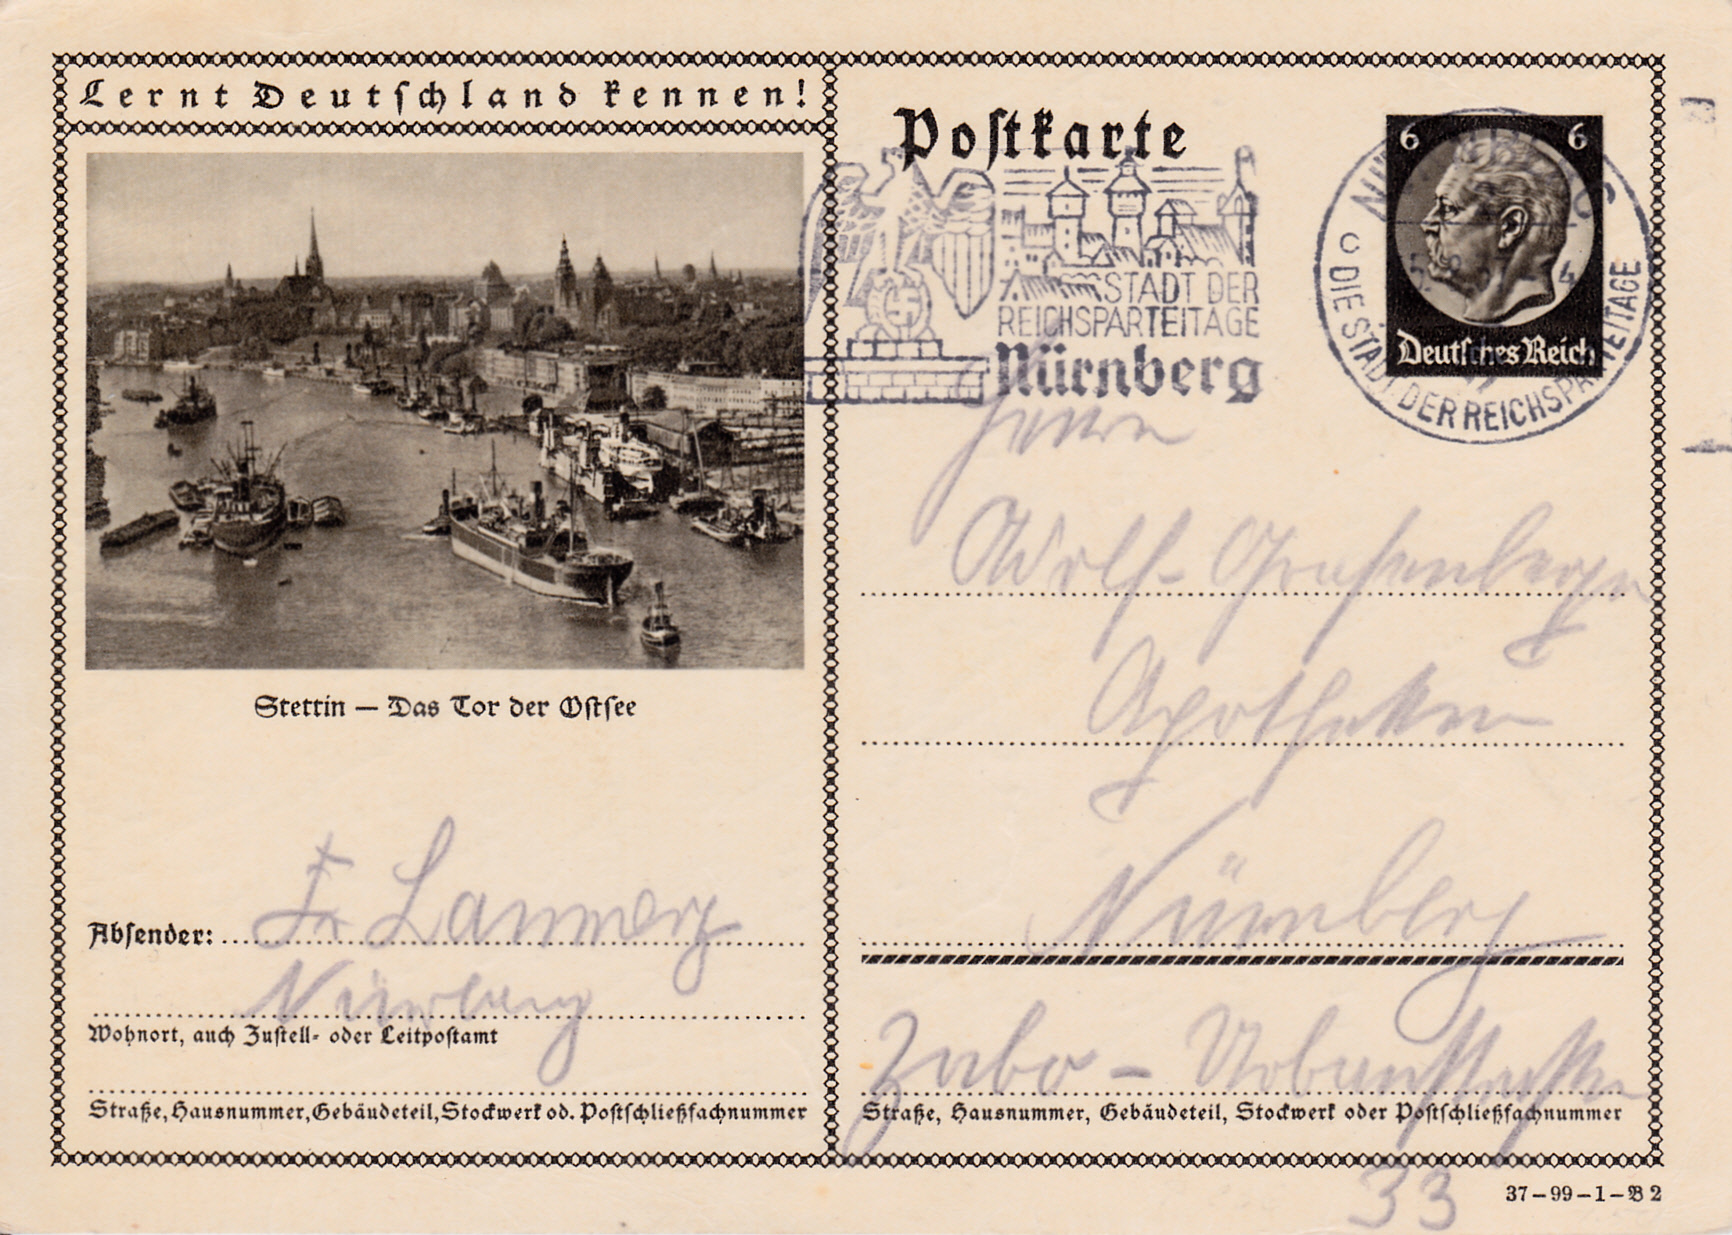 Lernt Deutschland kennen!
Stettin — Das Tor der Ostsee
Absender: Fr Lammerz
Nürnberg
Wohnort, auch Zustell- oder Leitpostamt
Straße, Hausnummer, Gebäudeteil, Stockwerk od. Postschließfachnummer
Postkarte
STADT DER
REICHSPARTEITAGE
Nürnberg
6 6
Deutsches Reich
DIE STADT DER REICHSPARTEITAGE
Herrn
Adolf Grafenberger
Apotheker
Nürnberg
Zabo -
Straße, Hausnummer, Gebäudeteil, Stockwerk oder Postschließfachnummer
33
37-99-1-B 2